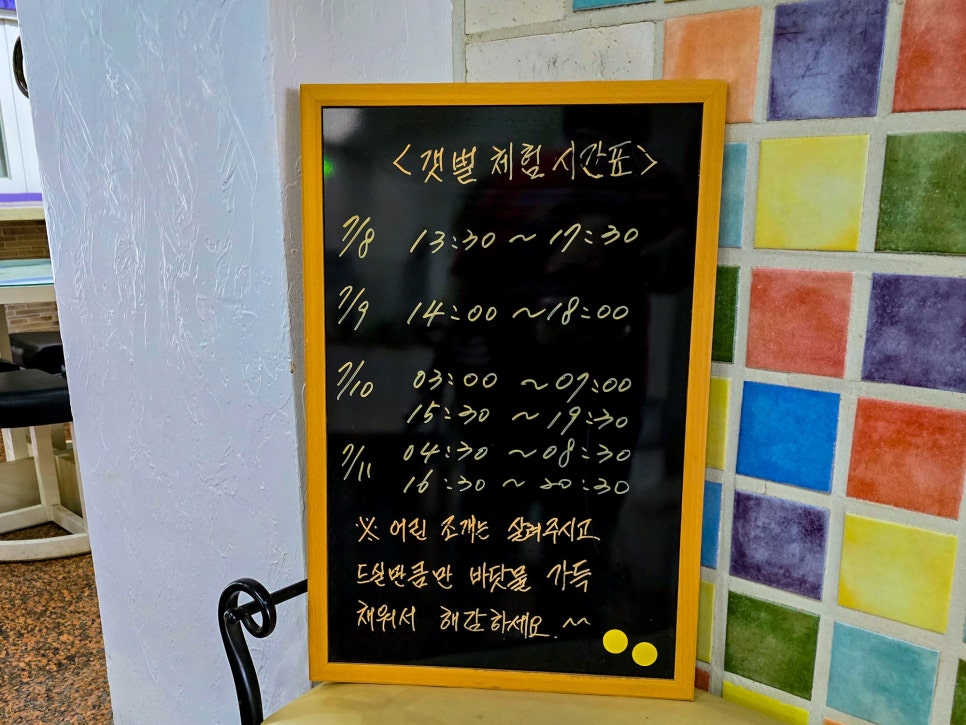 <갯벌 체험 시간표>
7/8 13:30 ~ 17:30
7/9 14:00 ~ 18:00
7/10 03:00 ~ 07:00
15:30 ~ 19:30
7/11 04:30 ~ 08:30
16:30 ~ 20:30
※ 어린 조개는 살려주시고
드실만큼만 바닷물 가득
채워서 해감하세요. ^^